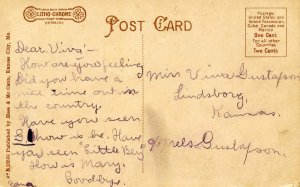 LITHO-CHROME
GERMANY
POST CARD
POSTAGE:
United States and
Island Possession
Cuba, Canada and
Mexico
One Cent
For all other
Countries
Two Cents
Dear Viva:-
How are you feeling
Did you have a
nice time out in
the country
Have you seen
how is be. Have
you seen "Little Ben
How is Mary.
Goodby.
Miss Viva Gustafson
Lindsborg
Kansas.
Gustafson.
Published by Hess & Mc Canal, Kansas City, Mo.